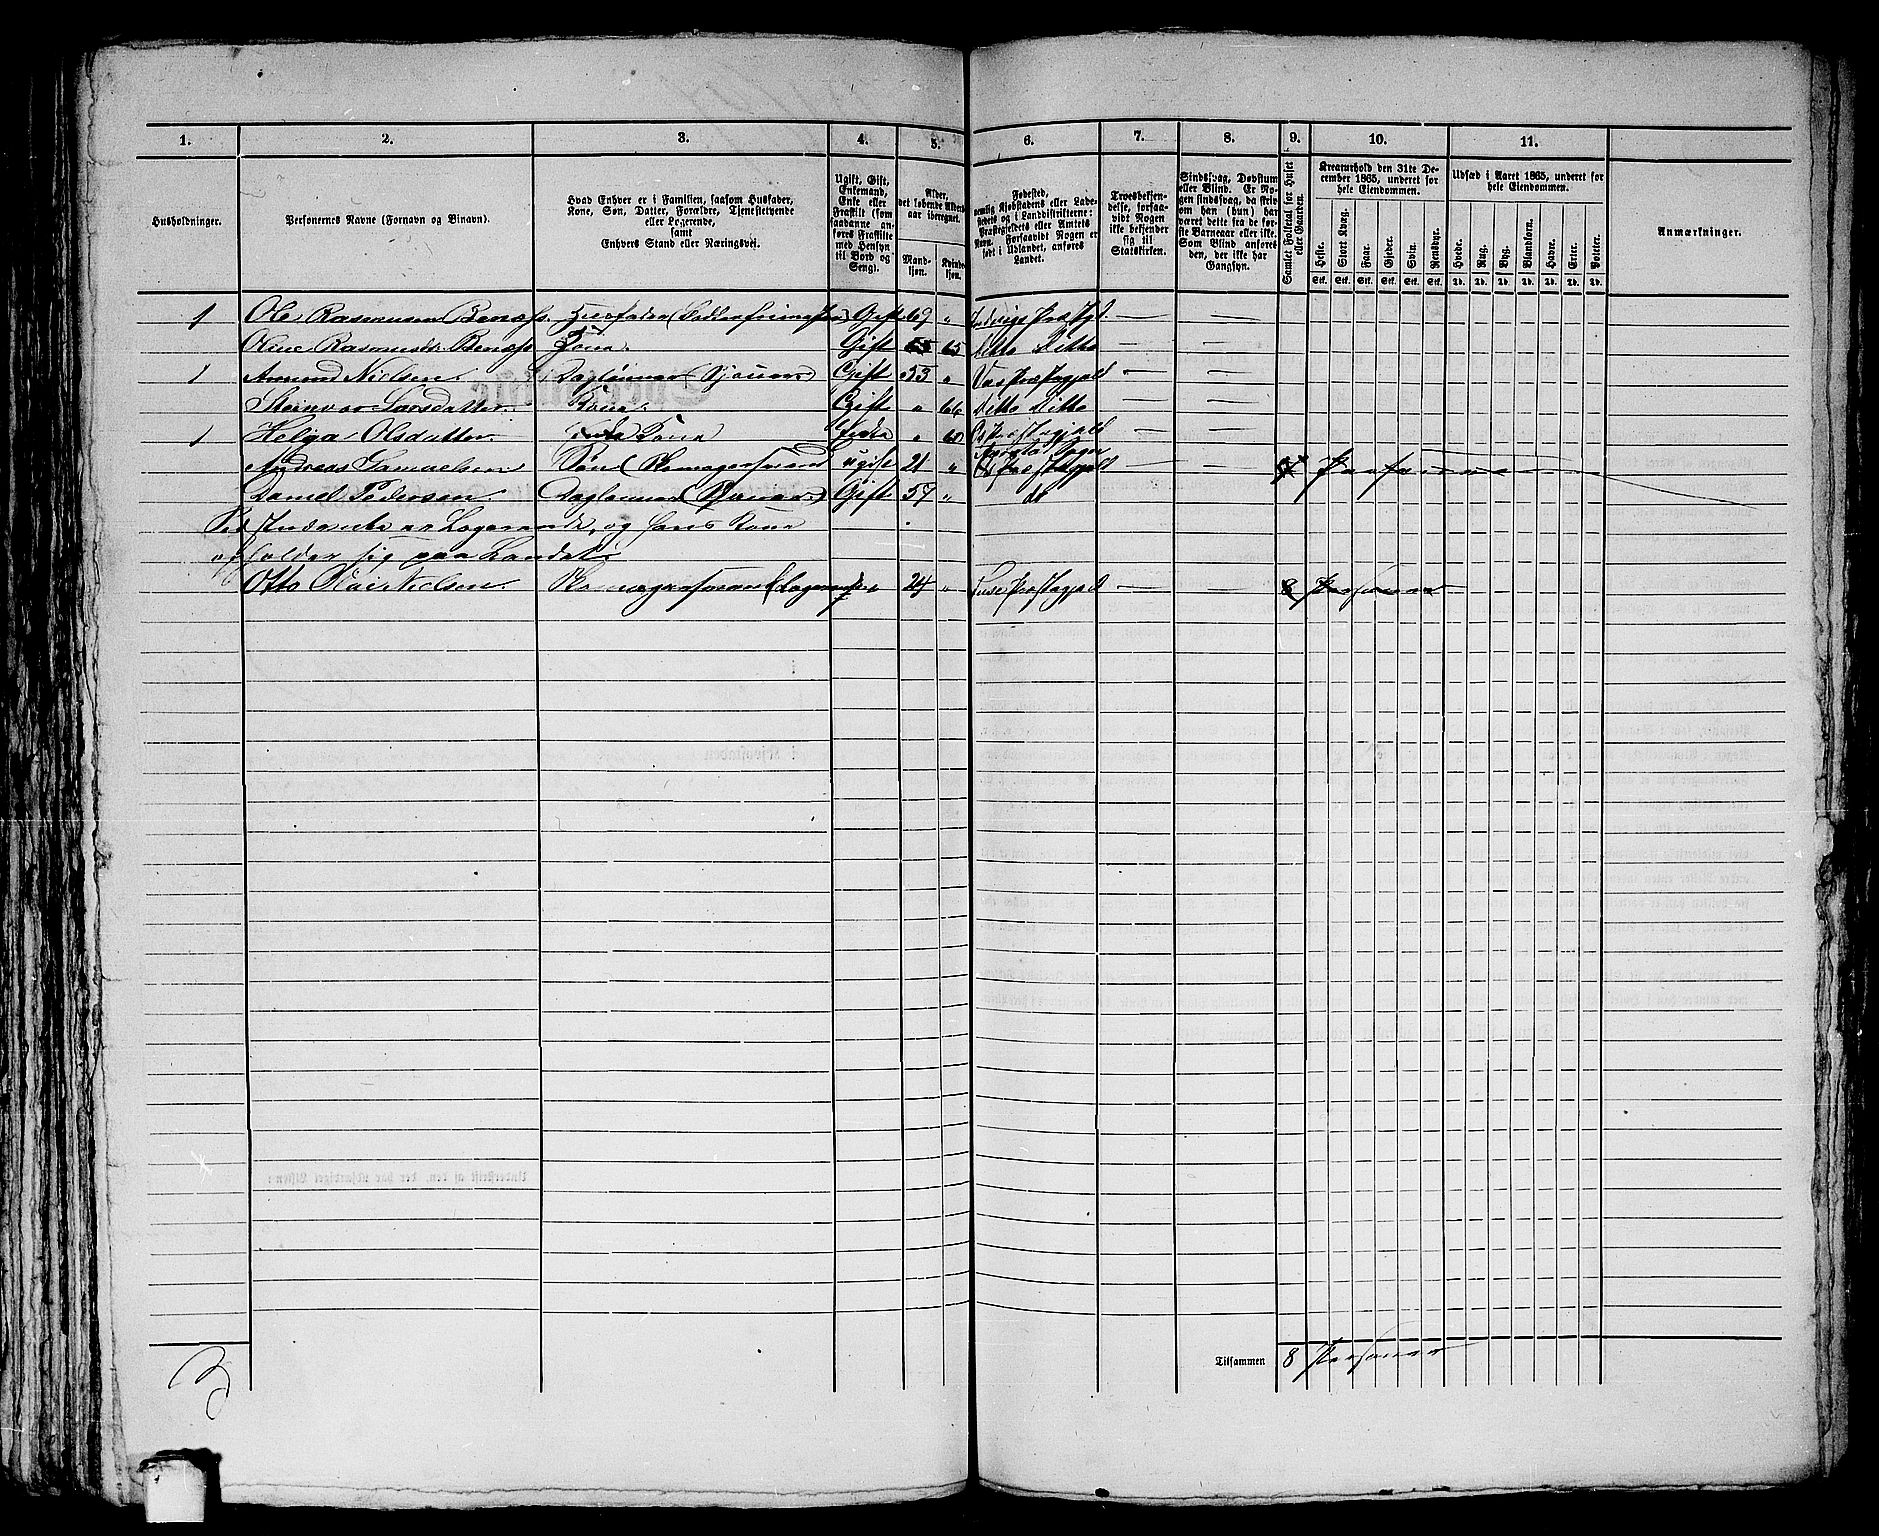 1. 2. 3. 4. 5. 6. 7. 8. 9. 10. 11.
Husholdninger.
Personernes Navne (Fornavn og Binavn).
Hvad Enhver er i Familien, saasom Husfader,
Kone, Søn, Datter, Forældre, Tjenestetyende
eller Logerende,
samt
Enhvers Stand eller Næringsvej.
Ugift, Gift,
Enkemand,
Enke eller
Fraskilt (som
saadanne an-
føres Fraskilte
med Hensyn
til Bord og
Seng).
Alder,
det løbende Alders-
aar iberegnet.
Mand-
kjøn.
Kvinde-
kjøn.
Fødested,
nemlig Kjøbstadens eller Lade-
stedets og i Landdistrikterne:
Præstegjeldets eller Amtets
Navn. Forsaavidt Nogen er
født i Udlandet, anføres
Landet.
Troesbekjen-
delse, forsaa-
vidt Nogen
ikke bekjender
sig til
Statskirken.
Sindssvag, Døvstum
eller Blind. Er No-
gen sindssvag, da skriv
om han (hun) har
været dette fra de før-
ste Barneaar eller ikke.
Som Blind anføres
den, der ikke har
Gangsyn.
Samlet Folketal for Huset
eller Gaarden.
Kreaturhold den 31te De-
cember 1865, underet for
hele Eiendommen.
Heste. Stort Kvæg. Faar. Gjeder. Svin. Rensdyr.
Stk. Stk. Stk. Stk. Stk. Stk.
Udsæd i Aaret 1865, underet for
hele Eiendommen.
Hvede. Rug. Byg. Blandkorn. Havre. Erter. Poteter.
Td. Td. Td. Td. Td. Td. Td.
Anmærkninger.
1 Ole Rasmusen Husfader Gift 69 „
Oline Kone Gift 65 Ditto Ditto
1 Amund Nielsen Daglønner Gift 53 „ Præstegjeld
Steinvor Larsdatter Kone Gift „ 66 Ditto Ditto
1 Helga Olsdatter Kone Enke „ 60 Præstegjeld
Andreas Samuelsen Søn (Skomagersvend ugift 21 „ Præstegjeld 7 Personer
Daniel Pedersen Daglønner Gift 57 „ do
er Logerende, og hans Kone
opholder sig paa Landet
Otto Olai Nielsen Skomagersvend (Logerende 24 „ Præstegjeld 8 Personer
3
Tilsammen 8 Personer